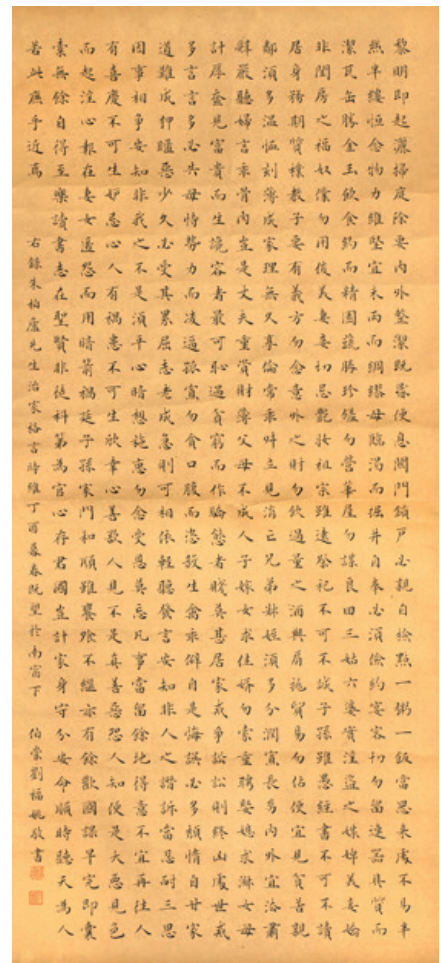 黎明即起灑掃庭除要內外整潔既昏便息關門鎖戶必親自檢點一粥一飯當思來處不易半
絲半縷恆念物力維艱宜未雨而綢繆毋臨渴而掘井自奉必須儉約宴客切勿留連器具質而
潔瓦缶勝金玉飲食約而精園蔬勝珍饈勿營華屋勿謀良田三姑六婆實淫盜之媒婢美妾嬌
非閨房之福奴僕勿用俊美妻妾切忌艷妝祖宗雖遠祭祀不可不誠子孫雖愚經書不可不讀
居身務期質樸教子要有義方勿貪意外之財勿飲過量之酒與肩挑貿易勿佔便宜見貧苦親
鄰須多溫恤刻薄成家理無久享倫常乖舛立見消亡兄弟叔姪須多分潤寡長幼內外宜法肅
辭嚴聽婦言乖骨肉豈是丈夫重資財薄父母不成人子嫁女求佳婿勿索重聘娶媳求淑女毋
計厚奩見富貴而生諂容者最可恥遇貧窮而作驕態者賤莫甚居家戒爭訟訟則終凶處世戒
多言言多必失毋恃勢力而凌逼孤寡勿貪口腹而恣殺生禽乖僻自是悔誤必多頹惰自甘家
道難成狎暱惡少久必受其累屈志老成急則可相依輕聽發言安知非人之譖訴當忍耐三思
因事相爭安知非我之不是須平心暗想施惠勿念受恩莫忘凡事當留餘地得意不宜再往人
有喜慶不可生妒忌心人有禍患不可生欣幸心善欲人見不是真善惡恐人知便是大惡見色
而起淫心報在妻女匿怨而用暗箭禍延子孫家門和順雖饔飧不繼亦有餘歡國課早完即囊
橐無餘自得至樂讀書志在聖賢非徒科第為官心存君國豈計家身守分安命順時聽天為人
若此庶乎近焉 右錄朱柏廬先生治家格言時維丁酉暮春既望於南窗下 伯崇劉福姚敬書